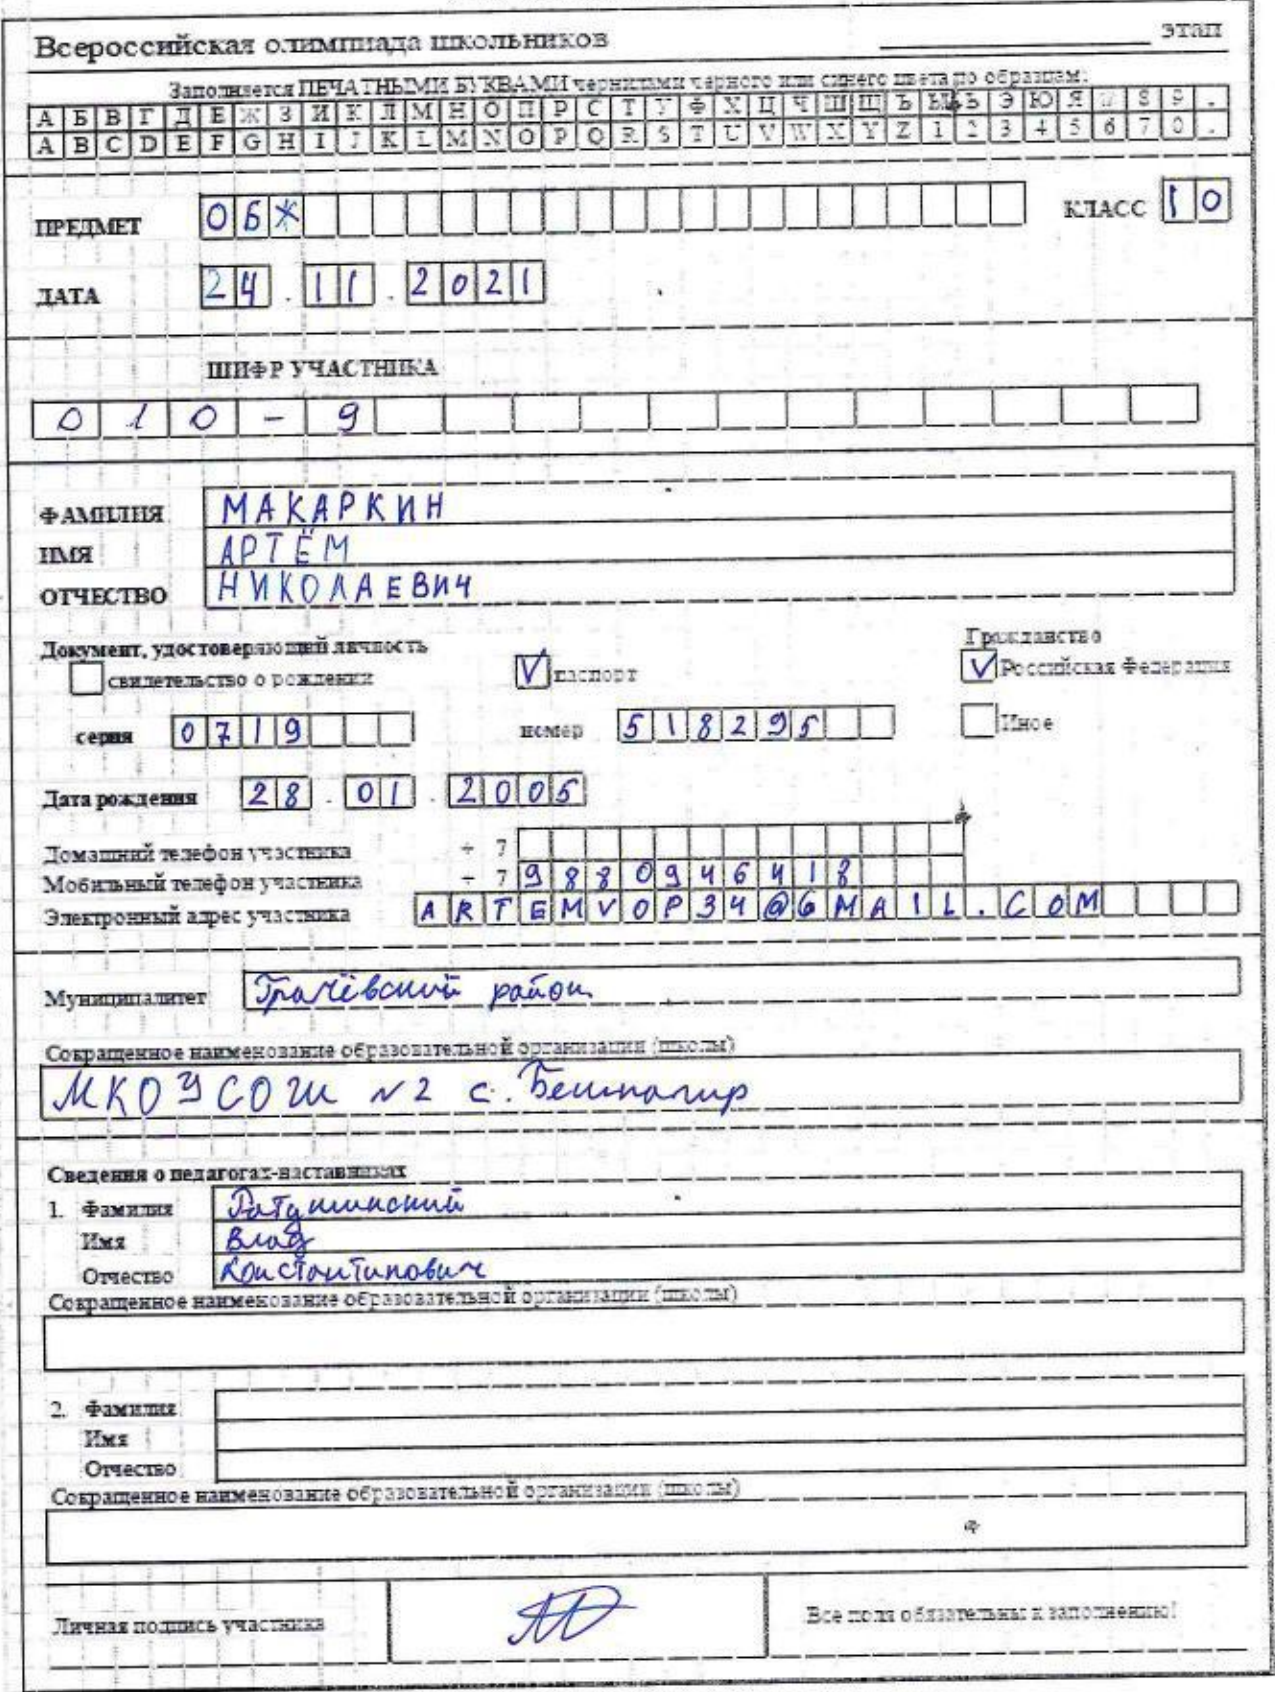 Всероссийская олимпиада школьников ____________ этап
Заполняется ПЕЧАТНЫМИ БУКВАМИ чернилами черного или синего цвета по образцам:
А Б В Г Д Е Ж З И К Л М Н О П Р С Т У Ф Х Ц Ч Ш Щ Ъ Ы Ь Э Ю Я 8 9 .
A B C D E F G H I J K L M N O P Q R S T U V W X Y Z 1 2 3 4 5 6 7 0 .
ПРЕДМЕТ ОБЖ КЛАСС 10
ДАТА 24.11.2021
ШИФР УЧАСТНИКА
010-9
ФАМИЛИЯ МАКАРКИН
ИМЯ АРТЁМ
ОТЧЕСТВО НИКОЛАЕВИЧ
Документ, удостоверяющий личность Гражданство
свидетельство о рождении V паспорт V Российская Федерация
серия 0719 номер 518295 Иное
Дата рождения 28.01.2005
Домашний телефон участника + 7
Мобильный телефон участника + 7 9880946418
Электронный адрес участника ARTEMVOP34@GMAIL.COM
Муниципалитет Грачёвский район
Сокращенное наименование образовательной организации (школы)
МКОУ СОШ №2 с. Бешпагир
Сведения о педагогах-наставниках
1. Фамилия Ратушинский
Имя Влад
Отчество Константинович
Сокращенное наименование образовательной организации (школы)
2. Фамилия
Имя
Отчество
Сокращенное наименование образовательной организации (школы)
Личная подпись участника Все поля обязательны к заполнению!